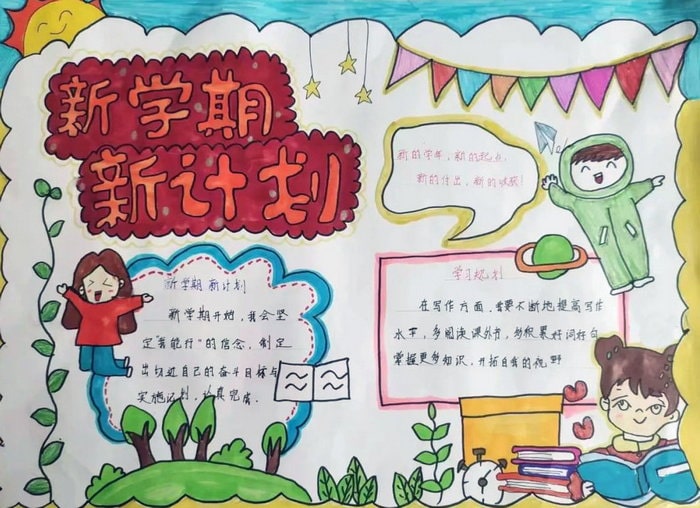 新学期
新计划
新的学年，新的起点，
新的付出，新的收获！
新学期 新计划
新学期开始，我会坚
定"我能行"的信念，制定
出切近自己的奋斗目标与
实施计划，认真完成．
学习规划
在写作方面，需要不断地提高写作
水平，多阅读课外书，多积累好词好句
掌握更多知识，开拓自我的视野